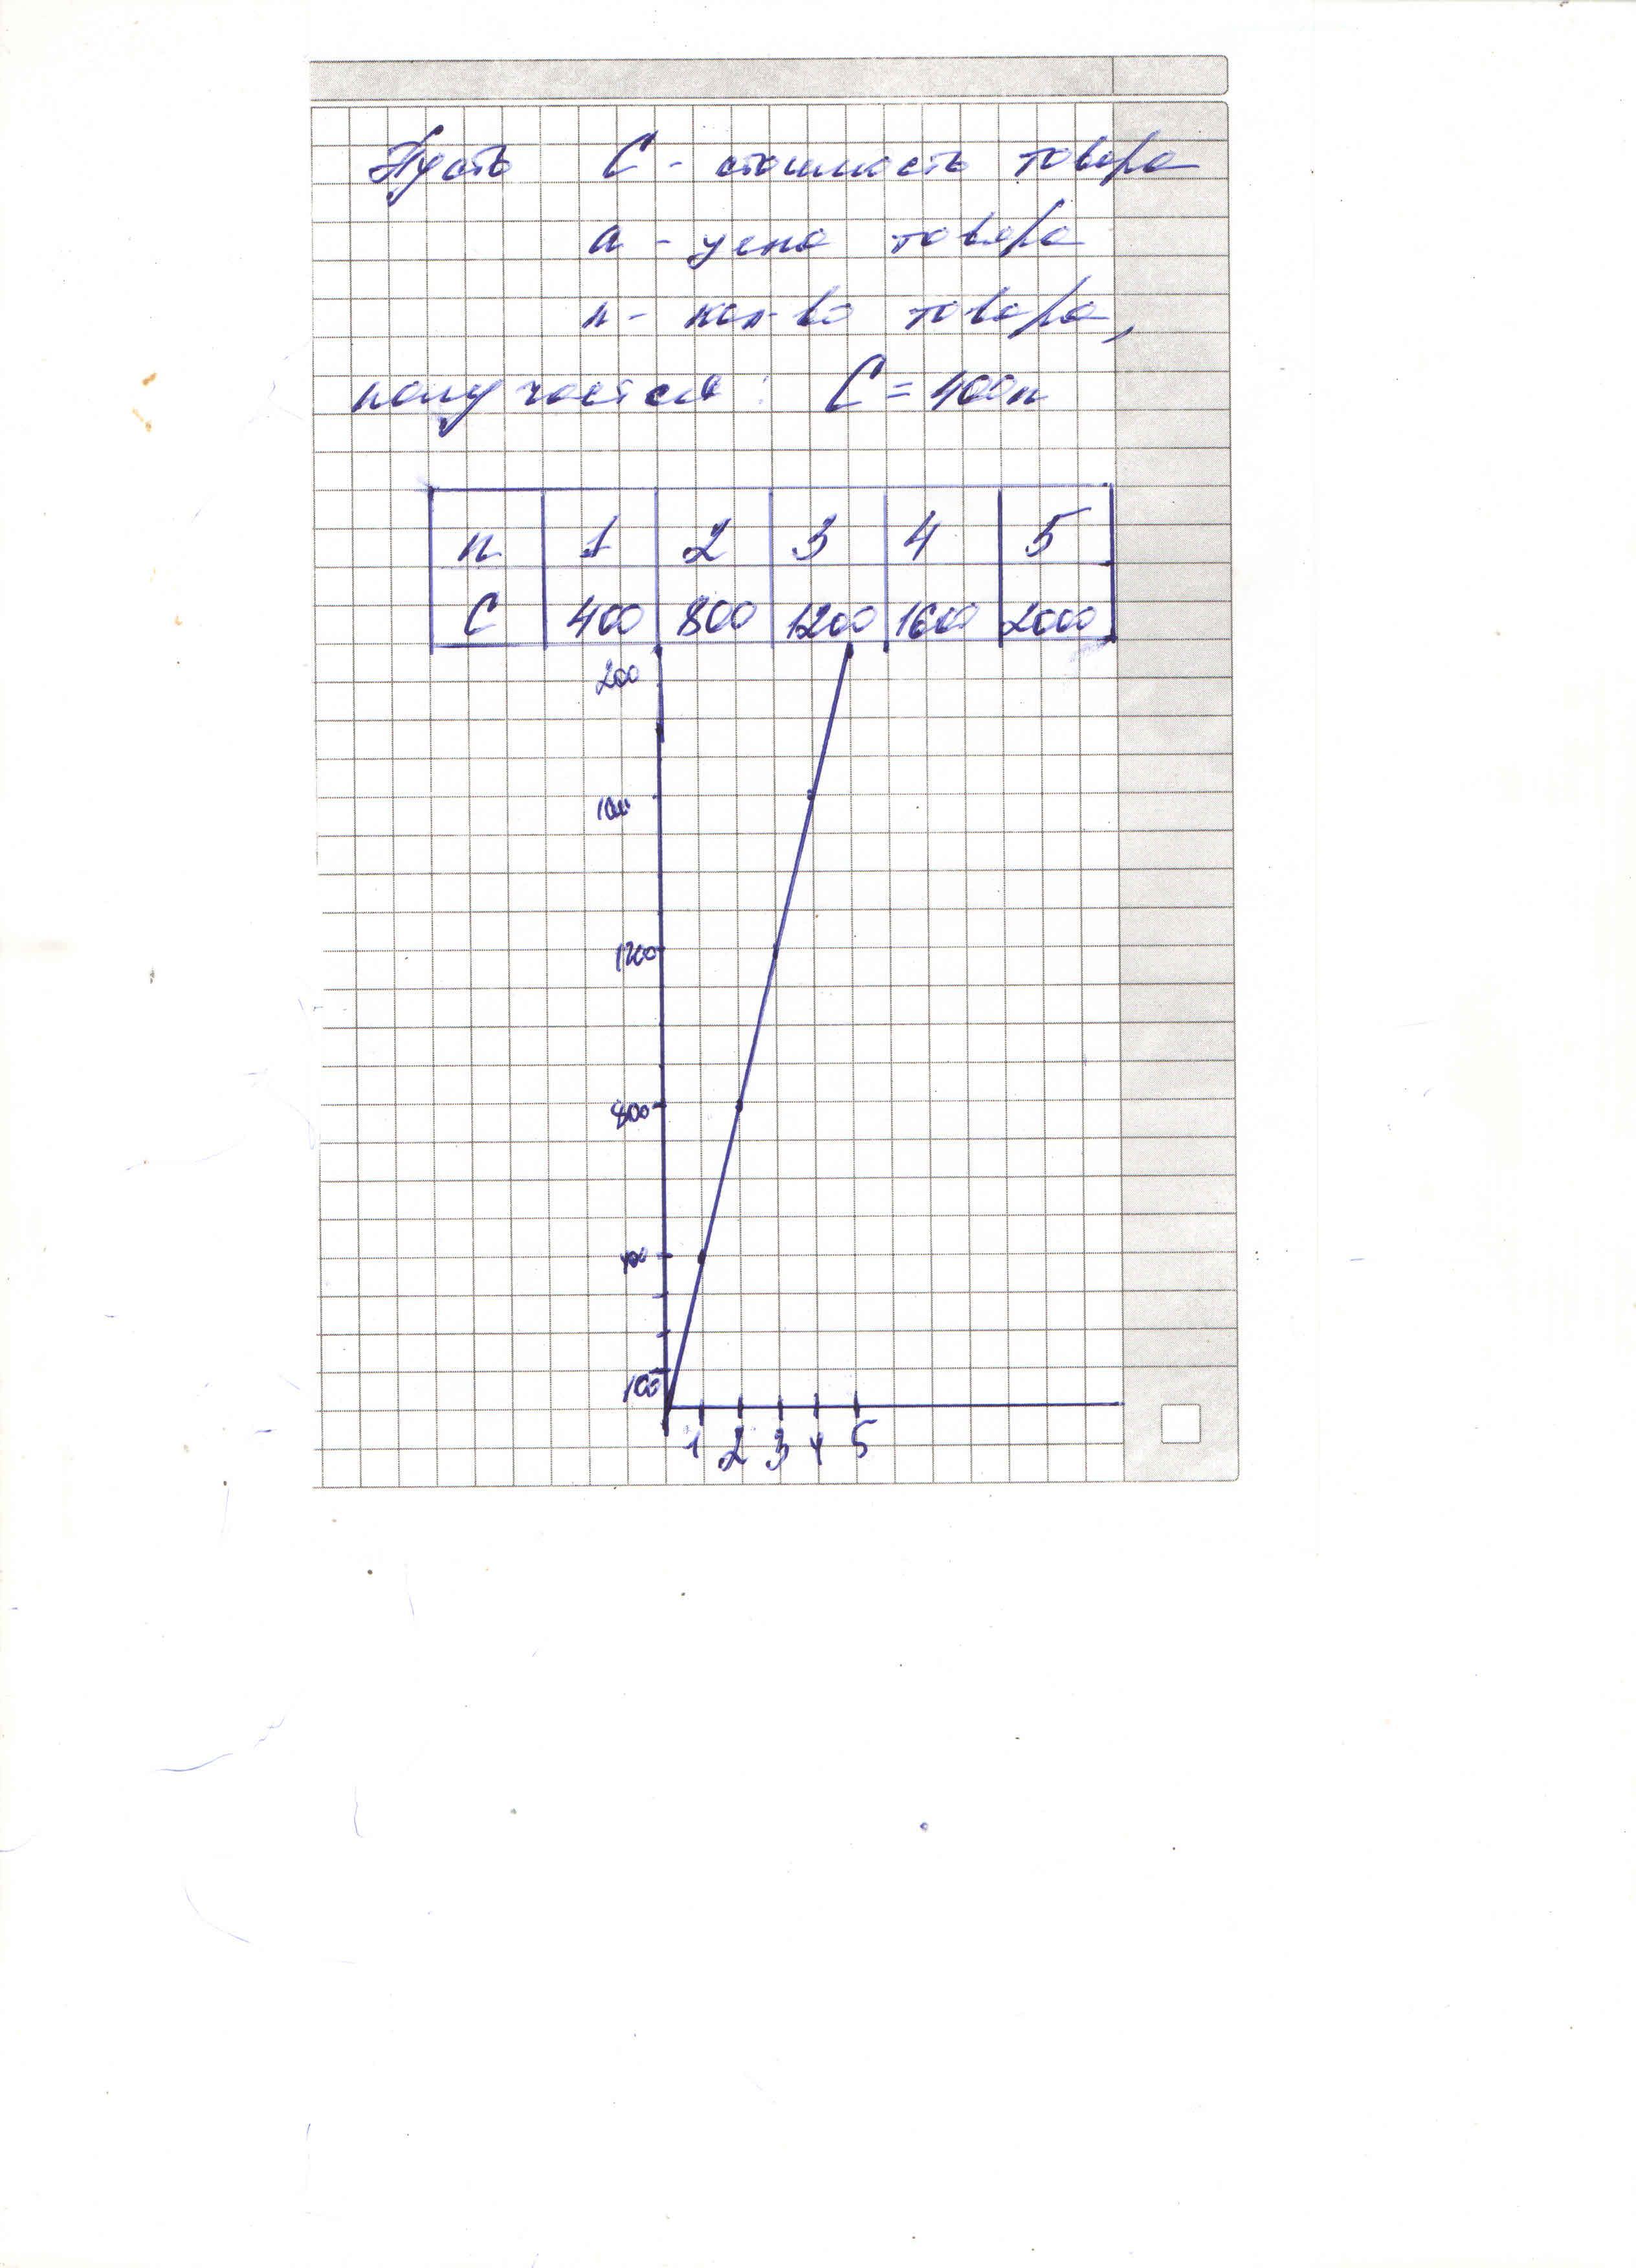 Пусть С - стоимость товара
а - цена товара
n - кол-во товара,
получается: С = 400n
n 1 2 3 4 5
С 400 800 1200 1600 2000
200
1200
800
400
100
1 2 3 4 5